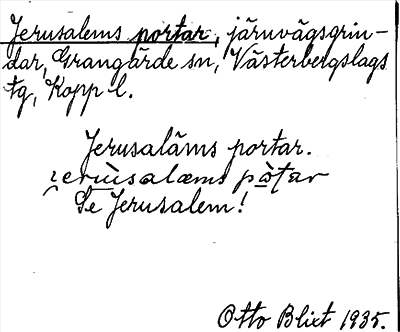 Jerusalems portar, järnvägsgrin-
dar, Grangärde sn, Västerbergslags
tg, Kopp. l.
Jerusaläms portar.
ɿerùsalæms pòṭar
Se Jerusalem!
Otto Blixt 1935.